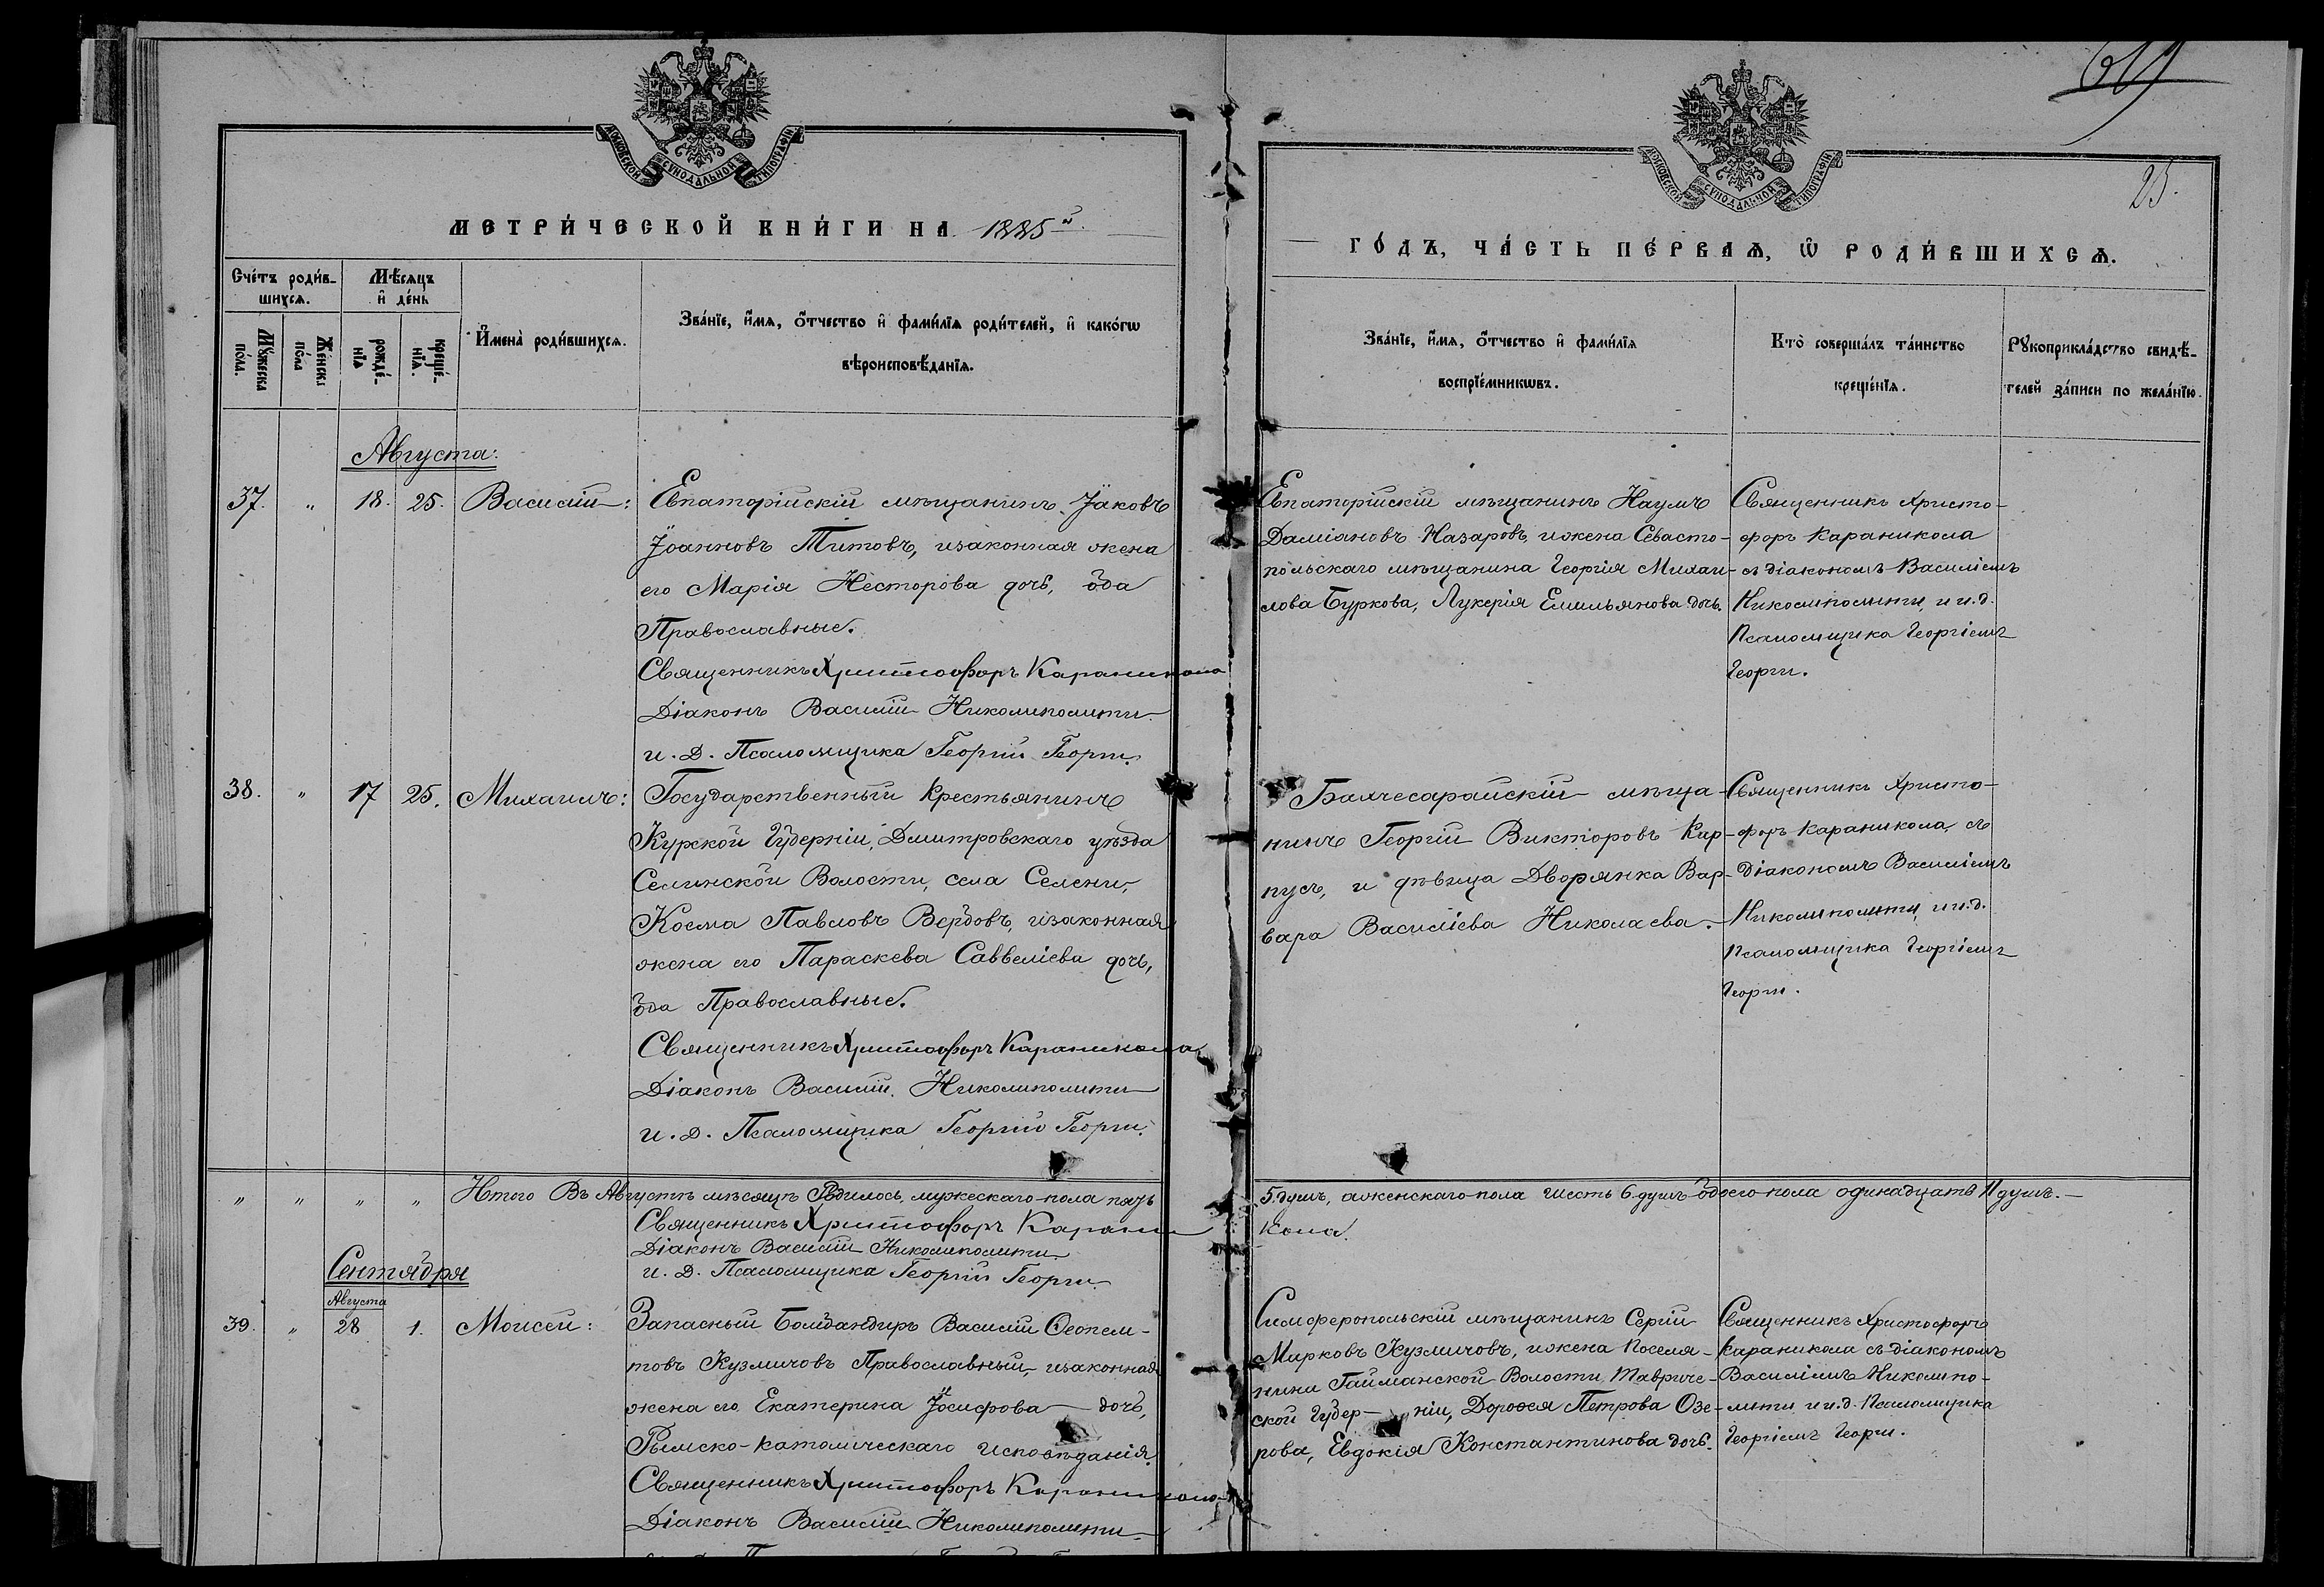 МОСКОВСКОЙ СУНОДАЛЬНОЙ ТИПОГРАФІИ
МОСКОВСКОЙ СУНОДАЛЬНОЙ ТИПОГРАФІИ
25.
МЕТРИ́ЧЕСКОЙ КНИ́ГИ НА 1885й
ГО́ДЪ, ЧА́СТЬ ПЕ́РВАѦ, Ѡ҆ РОДИ́ВШИХСѦ.
Сче́тъ роди́в-
шихсѧ.
Мѣ́сѧцъ
и҆ де́нь
Мꙋ́жеска
по́ла.
Же́нска
по́ла
рожде́-
нїѧ
креще́-
нїѧ.
И҆мена̀ роди́вшихсѧ.
Зва́нїе, и҆́мѧ, ѻ҆́тчество и҆ фами́лїѧ роди́телей, и҆ како́гѡ
вѣроисповѣ́данїѧ.
Зва́нїе, и҆́мѧ, ѻ҆́тчество и҆ фами́лїѧ
воспрїе́мникѡвъ.
Кто̀ соверша́лъ та́инство
креще́нїѧ.
Рꙋкоприкла́дство свидѣ́-
телей за́писи по жела́нїю.
Августа:
37. " 18. 25. Василій:
Евпаторійскій мѣщанинъ Іаковъ
Іоанновъ Титовъ, изаконная жена
его Марія Несторова дочь, оба
Православные.
Священникъ Христофоръ Караникола
Діаконъ Василій Николиполити
и. д. Псаломщика Георгій Георги.
Евпаторійскій мѣщанинъ Наумъ
Даміановъ Назаровъ, ижена Севасто-
польскаго мѣщанина Георгія Михаи-
лова Буркова, Лукерія Емильянова дочь.
Священникъ Христо-
форъ Караникола
съ діакономъ Василіемъ
Николиполити, и и.д.
Псаломщика Георгіемъ
Георги.
38. " 17 25. Михаилъ:
Государственный Крестьянинъ
Курской Губерніи, Дмитровскаго уѣзда
Селинской Волости, села Селени,
Косма Павловъ Вердовъ, изаконная
жена его Параскева Саввеліева дочь,
оба Православные.
Священникъ Христофоръ Караникола
Діаконъ Василій Николиполити
и. д. Псаломщика Георгій Георги.
Бахчесарайскій мѣща-
нинъ Георгій Викторовъ Кир-
пусъ, и дѣвица Дворянка Вар-
вара Василіева Николаева.
Священникъ Христо-
форъ Караникола, съ
Діакономъ Василіемъ
Николиполити, и и.д.
Псаломщика Георгіемъ
Георги.
" " " " Итого Въ Августѣ мѣсяцѣ Родилось, мужескаго пола пять
5. душъ, аженскаго пола шесть 6. душъ обоего пола одинадцать 11 душъ.
Священникъ Христофоръ Карани
кола.
Діаконъ Василій Николиполити
и. д. Псаломщика Георгій Георги
Сентября
Августа
39. " 28 1. Моисей:
Запасный Бомбандиръ Василій Феопем-
товъ Кузмичовъ Православный, изаконная
жена его Екатерина Іосифова дочь,
Римско-католическаго исповѣданія.
Священникъ Христофоръ Караникола
Діаконъ Василій Николиполити
Симферопольскій мѣщанинъ Сергій
Марковъ Кузмичовъ, ижена Поселя-
нина Гайманской Волости, Тавриче-
ской Губер-ніи, Дорофея Петрова Озе-
рова, Евдокія Константинова дочь.
Священникъ Христофоръ
Караникола съ діакономъ
Василіемъ Николипо-
лити и и.д. Псаломщика
Георгіемъ Георги.